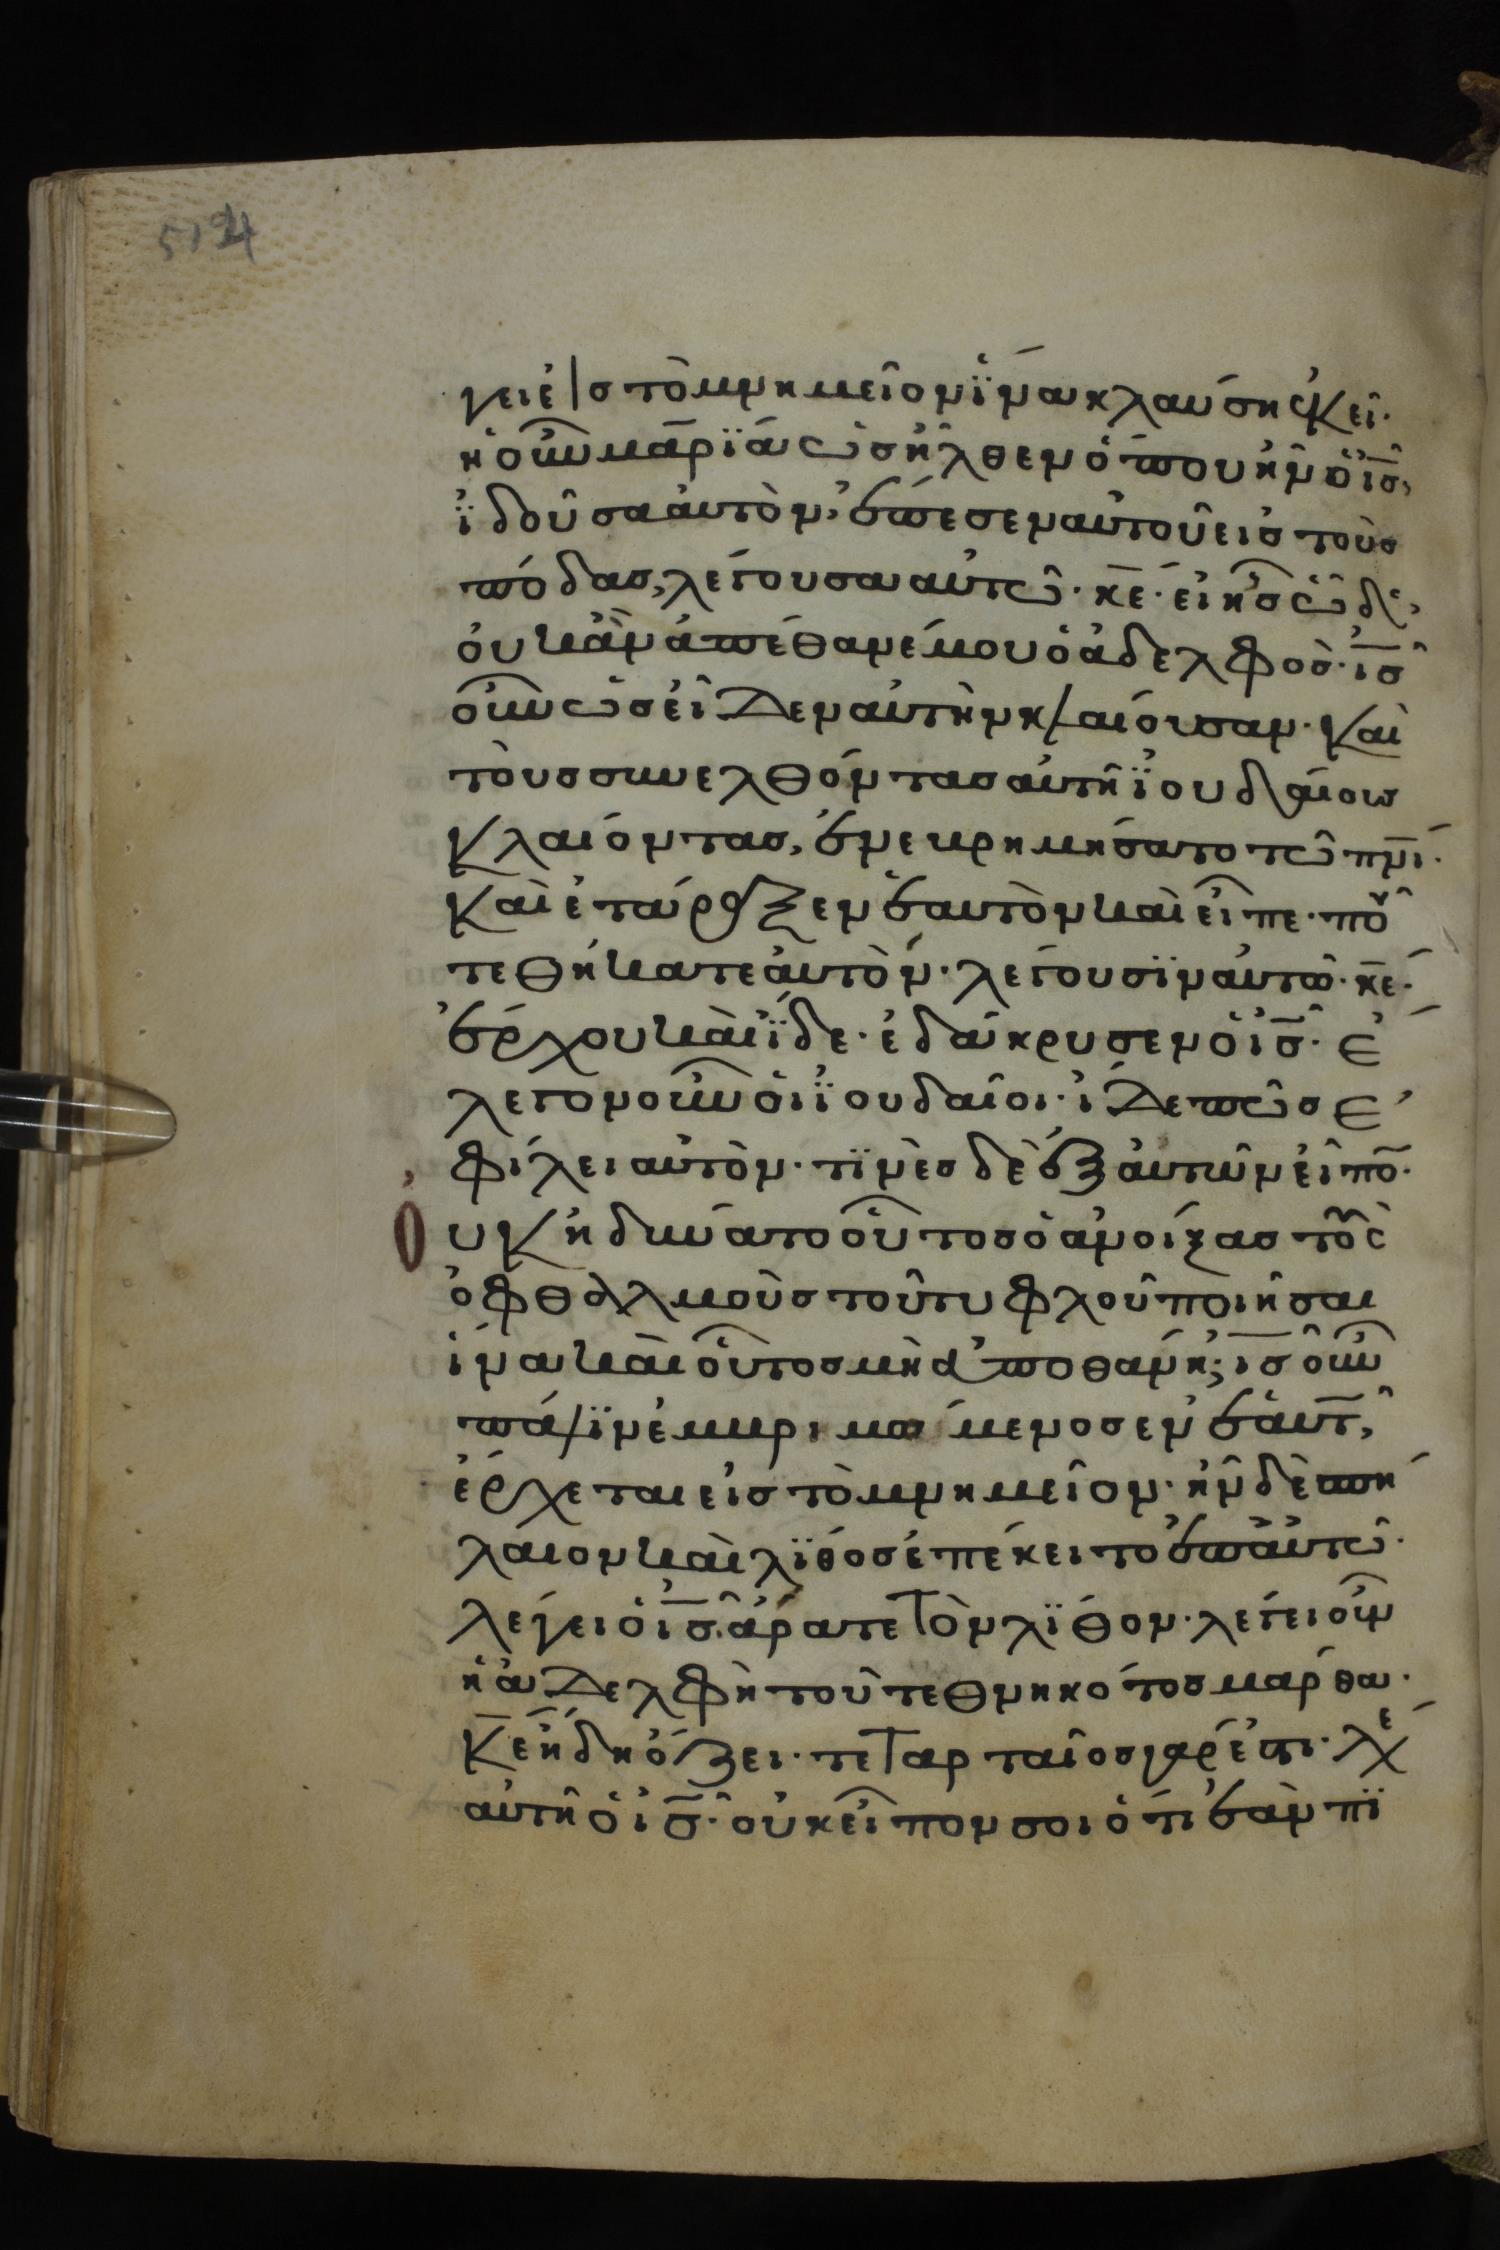 514
γει εἰς τὸ μνημεῖον ϊνα κλαύση ἐκεῖ·
ἡ οὖν μαρϊά ὡς ἦλθεν ὅπου ἦν ὁ ι̅ς̅,
ϊδοῦσα ἀυτὸν, ἔπεσεν αὐτοῦ εἰς τοὺς
πόδας, λέγουσα αὐτῶ· κ̅ε̅· εἰ ἦς ὧδε,
οὐκ ἂν ἀπέθανέ μου ὁ ἀδελφός· ι̅ς̅
οὖν ὡς εἶδεν αὐτὴν κλαίουσαν· καὶ
τοὺς συνελθόντας αὐτῆ ϊουδαίους
κλαίοντας, ἐνεβρημήσατο τῶ π̅ν̅ι̅·
καὶ ἐτάραξεν ἑαυτὸν καὶ εἶπε· ποῦ
τεθήκατε ἀυτόν· λέγουσϊν αὐτῶ· κ̅ε̅·
ἔρχου καὶ ϊδε· ἐδάκρυσεν ὁ ι̅ς̅· ἔ
λεγον οὖν ὁι ϊουδαῖοι· ἴδε πῶς ἐ
φίλει αὐτὸν· τϊνὲς δὲ ἐξ ἀυτῶν εἶπο̅·
Οὐκ ἠδύνατο οὗτος ὁ ἀνοίξας τοὺς
ὀφθαλμοὺς τοῦ τυφλοῦ ποιῆσαι
ἵνα καὶ οὗτος μὴ ἀποθάνη; ι̅ς̅ οὖν
πάλϊν ἐμβριμώμενος ἐν ἑαυτ̅,
ἔρχεται εἰς τὸ μνημεῖον· ἦν δὲ σπή
λαιον καὶ λϊθος ἐπέκειτο ἐπ ἀυτῶ·
λέγει ὁ ι̅ς̅· ἄρατε τὸν λϊθον· λέγει οὖν
ἡ ἀδελφὴ τοῦ τεθνηκότος μάρθα·
κ̅ε̅ ἤδη ὄζει· τεταρταῖος γάρ ἐστι· λέ
αὐτῆ ὁ ι̅ς̅· οὐκ εἶπον σοι ὅτι ἐὰν πϊ